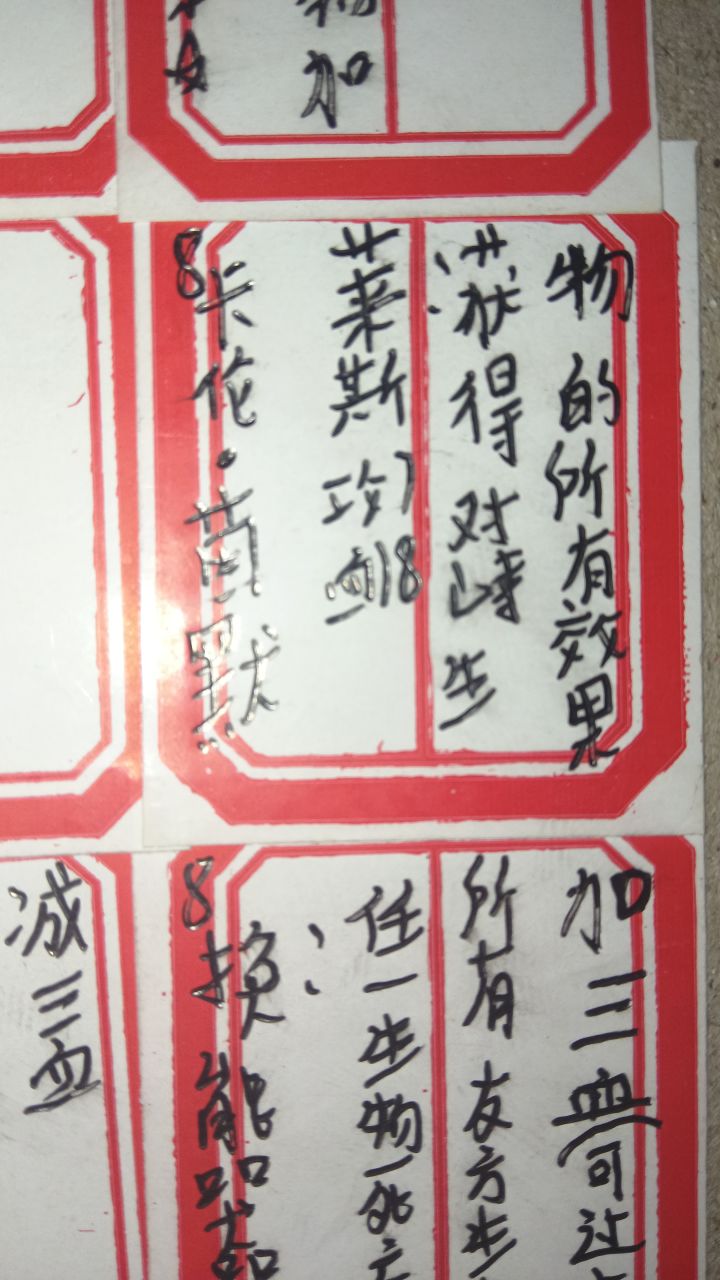 物加
8卡伦·茵默
莱斯攻7血18
：获得对峙生
物的所有效果
减三血
8换能器
：任一生物一死亡
所有友方生
加三血（可让